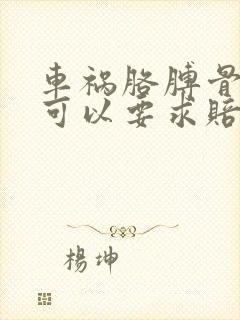 車祸胳膊骨
可以要求賠
楊坤